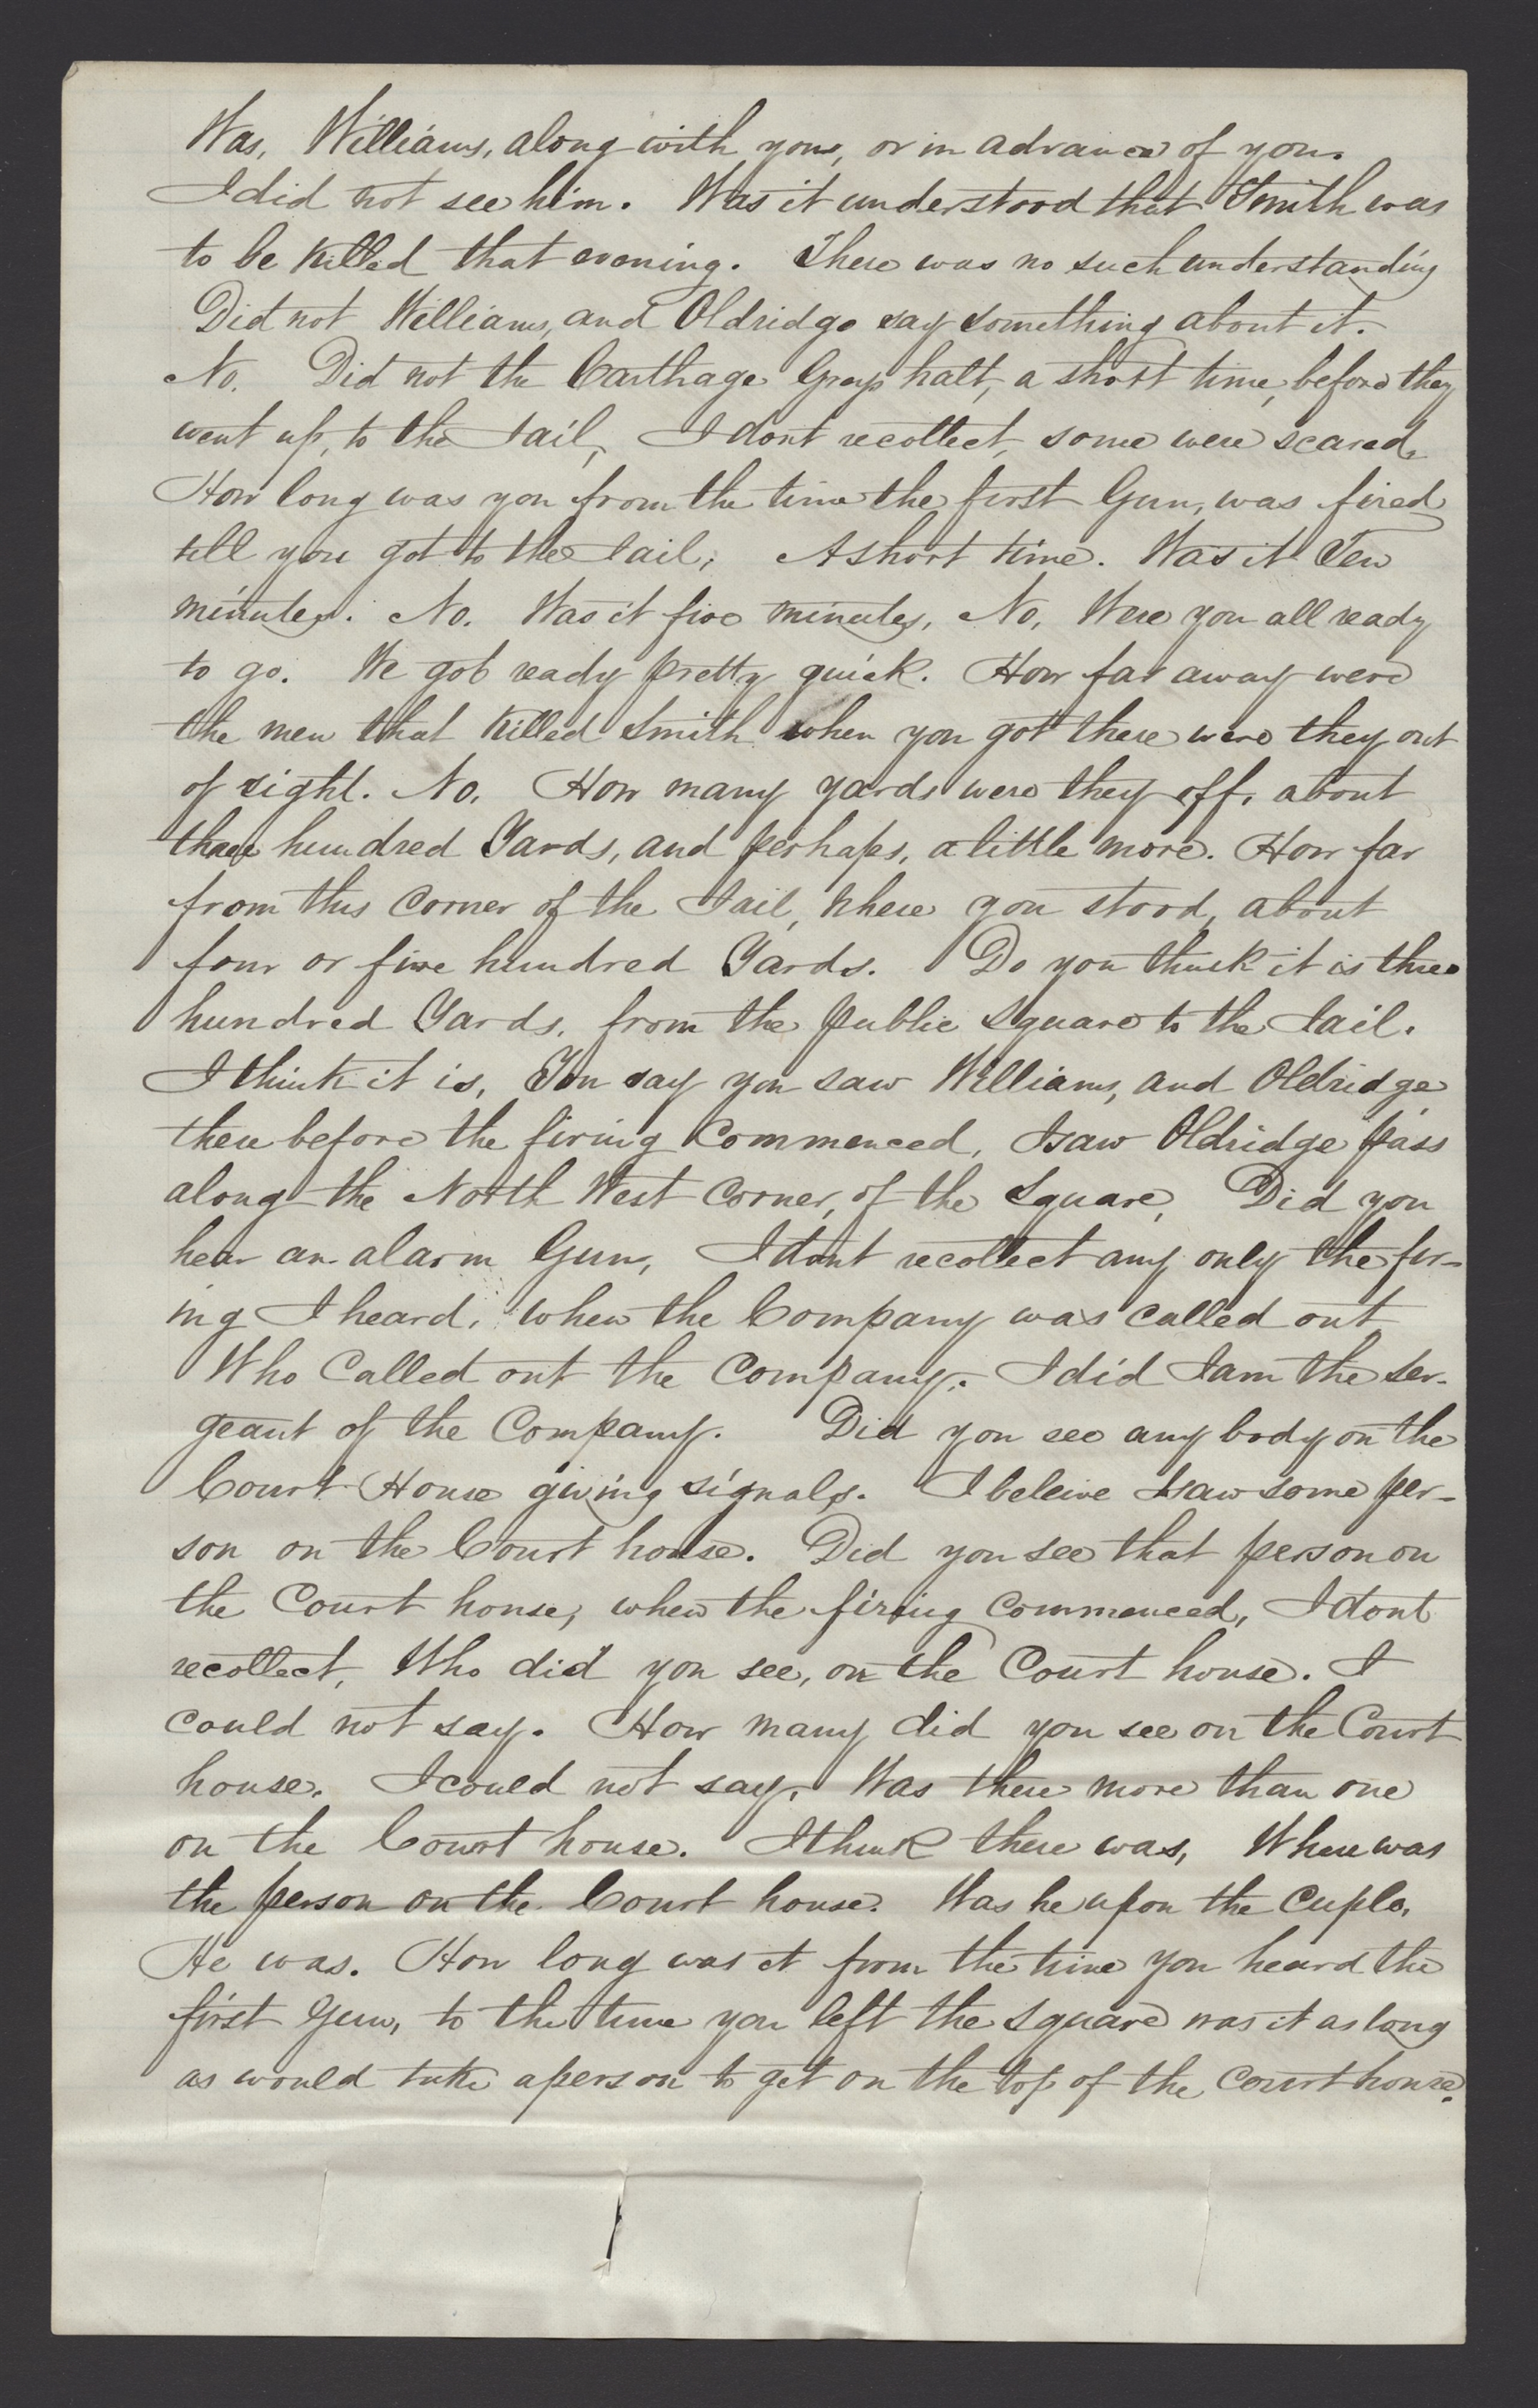 Was, Williams, along with you, or in advance of you.
I did not see him. Was it understood that Smith was
to be killed that evening. There was no such understanding
Did not Williams, and Oldridge say something about it.
No. Did not the Carthage Greys halt, a short time, before they
went up, to the Jail, I dont recollect, some were scared,
How long was you from the time the first Gun, was fired
till you got to the Jail; A short time. Was it Ten
minutes. No. Was it five minutes, No, Were you all ready
to go. We got ready pretty quick. How far away were
the men that killed Smith when you got there were they out
of sight. No. How many yards were they off, about
three hundred Yards, and perhaps, a little more. How far
from this corner of the Jail, where you stood, about
four or five hundred Yards. Do you think it is three
hundred Yards, from the public square to the Jail.
I think it is, You say you saw Williams, and Oldridge
there before the firing Commenced, I saw Oldridge pass
along the North West Corner, of the Square, Did you
hear an alarm Gun, I dont recollect any only the fir-
ing I heard, when the Company was called out
Who Called out the Company. I did I am the Ser-
geant of the Company. Did you see any body on the
Court House giving signals. I beleive I saw some per-
son on the Court house. Did you see that person on
the Court house, when the firing Commenced, I dont
recollect, Who did you see, on the Court house. I
could not say. How many did you see on the Court
house. I could not say, Was there more than one
on the Court house. I think there was, Where was
the person on the Court house. Was he upon the Cuplo,
He was. How long was it from the time you heard the
first Gun, to the time you left the square was it as long
as would take a person to get on the top of the Court house.